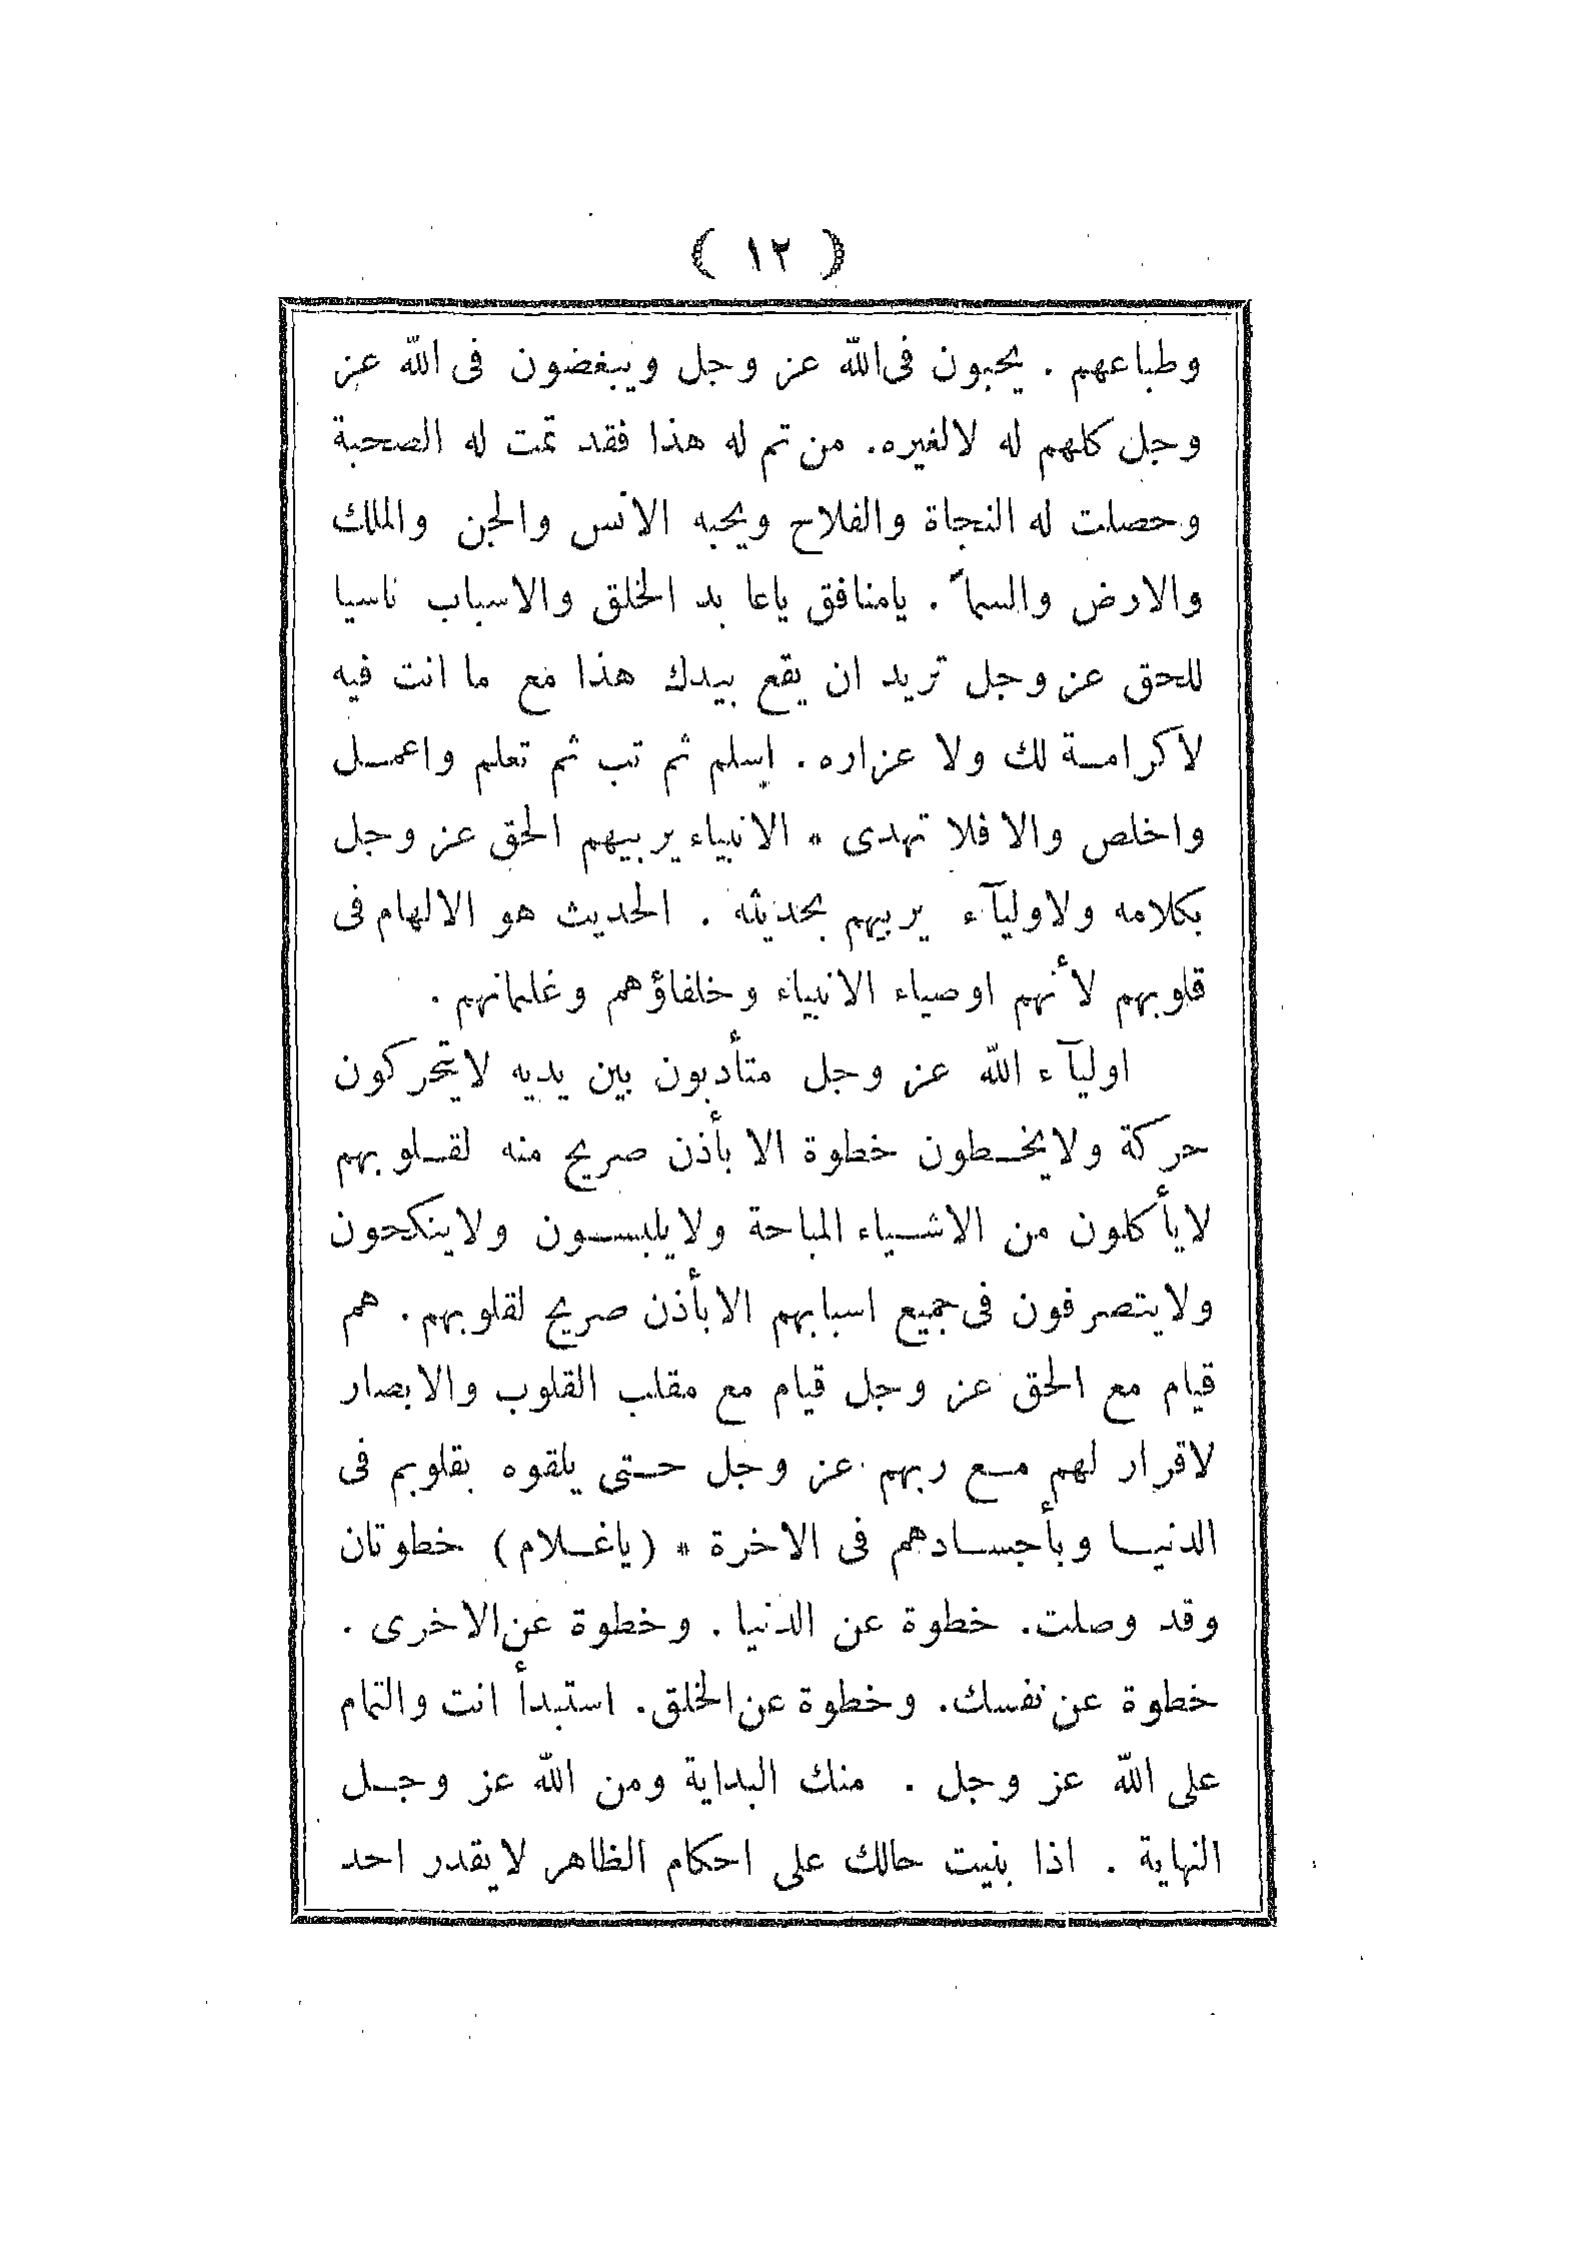 ( ١٢ )
وطباعهم . يحبون فى الله عز وجل ويبغضون فى الله عز
وجل كلهم له لالغيره. من تم له هذا فقد تمت له الصحبة
وحصلت له النجاة والفلاح ويحبه الانس والجن والملك
والارض والسمآ . يامنافق ياعا بد الخلق والاسباب ناسيا
للحق عز وجل تريد ان يقع بيدك هذا مع ما انت فيه
لاكرامة لك ولا عزاره . اسلم ثم تب ثم تعلم واعمل
واخلص والا فلا تهدى * الانبياء يربيهم الحق عز وجل
بكلامه ولاوليآء يربيهم بحديثه . الحديث هو الالهام فى
قلوبهم لأنهم اوصياء الانبياء وخلفاؤهم وغلمانهم .
اوليآء الله عز وجل متأدبون بين يديه لايتحركون
حركة ولايخطون خطوة الا بأذن صريح منه لقلوبهم
لايأكلون من الاشياء المباحة ولايلبسون ولاينكحون
ولايتصرفون فى جميع اسبابهم الابأذن صريح لقلوبهم . هم
قيام مع الحق عز وجل قيام مع مقلب القلوب والابصار
لاقرار لهم مع ربهم عز وجل حتى يلقوه بقلوبم فى
الدنيا وبأجسادهم فى الاخرة * (ياغلام) خطوتان
وقد وصلت. خطوة عن الدنيا . وخطوة عن الاخرى .
خطوة عن نفسك. وخطوة عن الخلق. استبدأ انت والتمام
على الله عز وجل . منك البداية ومن الله عز وجل
النهاية . اذا بنيت حالك على احكام الظاهر لايقدر احد